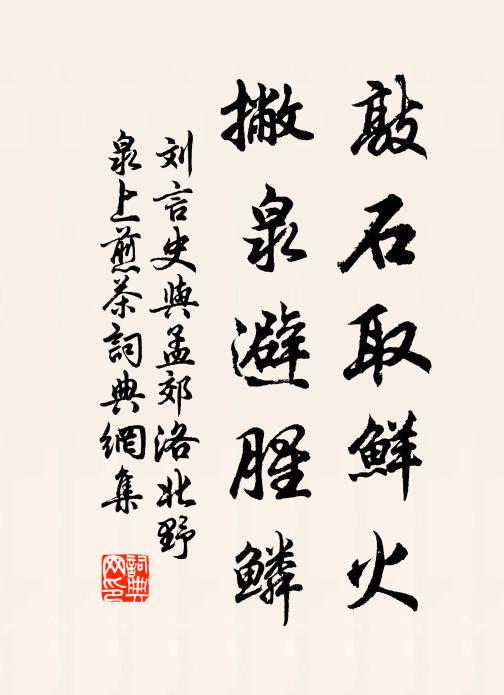 敲石取鮮火
撇泉避腥鱗
刘言史與孟郊洛北野
泉上煎茶詞典網集
詞典
网印